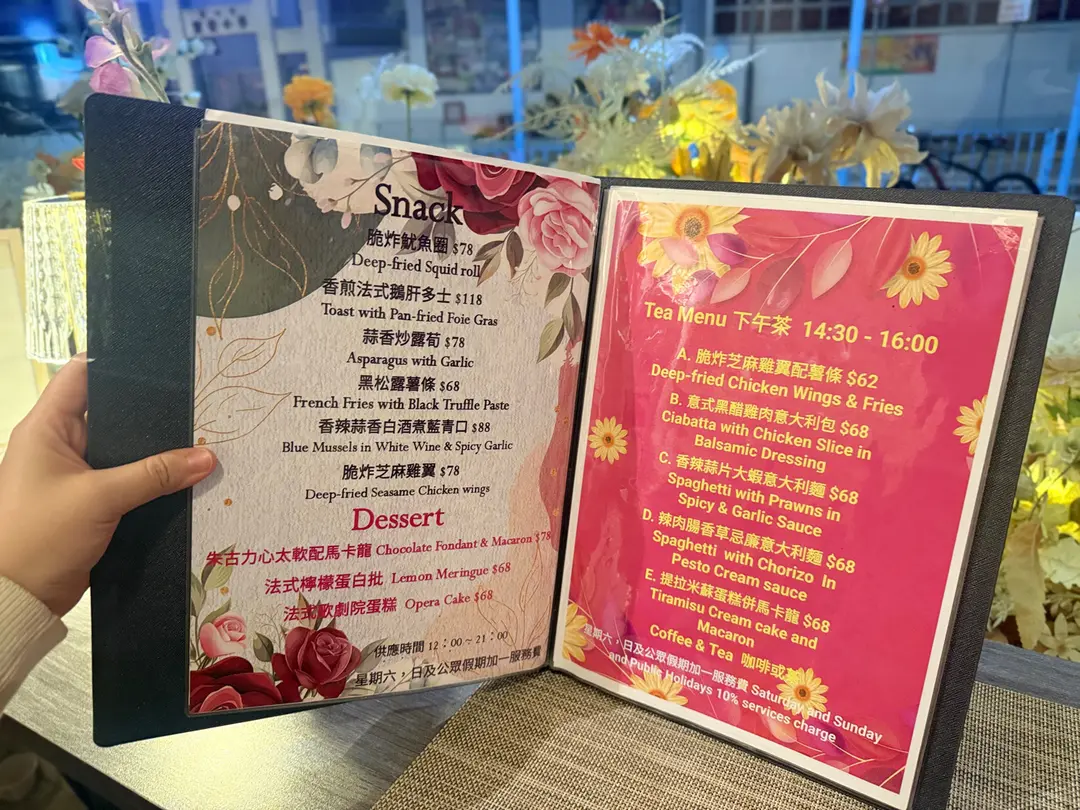 Snack
脆炸魷魚圈 $78
Deep-fried Squid roll
香煎法式鵝肝多士 $118
Toast with Pan-fried Foie Gras
蒜香炒露荀 $78
Asparagus with Garlic
黑松露薯條 $68
French Fries with Black Truffle Paste
香辣蒜香白酒煮藍青口 $88
Blue Mussels in White Wine & Spicy Garlic
脆炸芝麻雞翼 $78
Deep-fried Seasame Chicken wings
Dessert
朱古力心太軟配馬卡龍 Chocolate Fondant & Macaron $78
法式檸檬蛋白批 Lemon Meringue $68
法式歌劇院蛋糕 Opera Cake $68
供應時間 12：00 ~ 21：00
星期六，日及公眾假期加一服務費
Tea Menu 下午茶 14:30 - 16:00
A. 脆炸芝麻雞翼配薯條 $62
Deep-fried Chicken Wings & Fries
B. 意式黑醋雞肉意大利包 $68
Ciabatta with Chicken Slice in
Balsamic Dressing
C. 香辣蒜片大蝦意大利麵 $68
Spaghetti with Prawns in
Spicy & Garlic Sauce
D. 辣肉腸香草忌廉意大利麵 $68
Spaghetti with Chorizo In
Pesto Cream sauce
E. 提拉米蘇蛋糕併馬卡龍 $68
Tiramisu Cream cake and
Macaron
Coffee & Tea 咖啡或茶
星期六，日及公眾假期加一服務費 Saturday and Sunday
and Public Holidays 10% services
charge